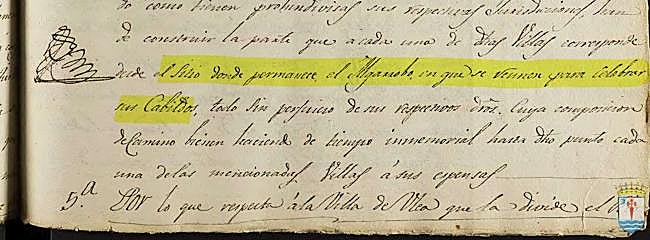 do como tienen proindivisas sus respectivas Jurisdicciones, han
de construir la parte que a cada una de dhas Villas corresponde
desde el Sitio donde permanece el Algarrobo, en que se reunen para celebrar
sus Cabildos, todo sin perjuicio de sus respectivos dros. Cuya composicion
de Camino bienen haciendo de tiempo inmemorial hasta dho punto cada
una de las mencionadas Villas á sus espensas
5.a Por lo que respecta á la Villa de Ulea que la divide el